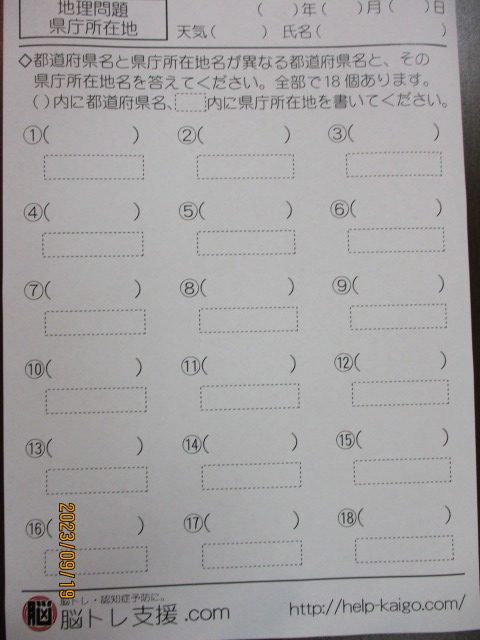 地理問題
県庁所在地
(　)年(　)月(　)日
天気(　)氏名(　)
◇都道府県名と県庁所在地名が異なる都道府県名と、その
県庁所在地名を答えてください。全部で18個あります。
( )内に都道府県名、 内に県庁所在地を書いてください。
①(　) ②(　) ③(　)
④(　) ⑤(　) ⑥(　)
⑦(　) ⑧(　) ⑨(　)
⑩(　) ⑪(　) ⑫(　)
⑬(　) ⑭(　) ⑮(　)
⑯(　) ⑰(　) ⑱(　)
2023/09/19
脳トレ・認知症予防に。
脳 脳トレ支援.com
http://help-kaigo.com/